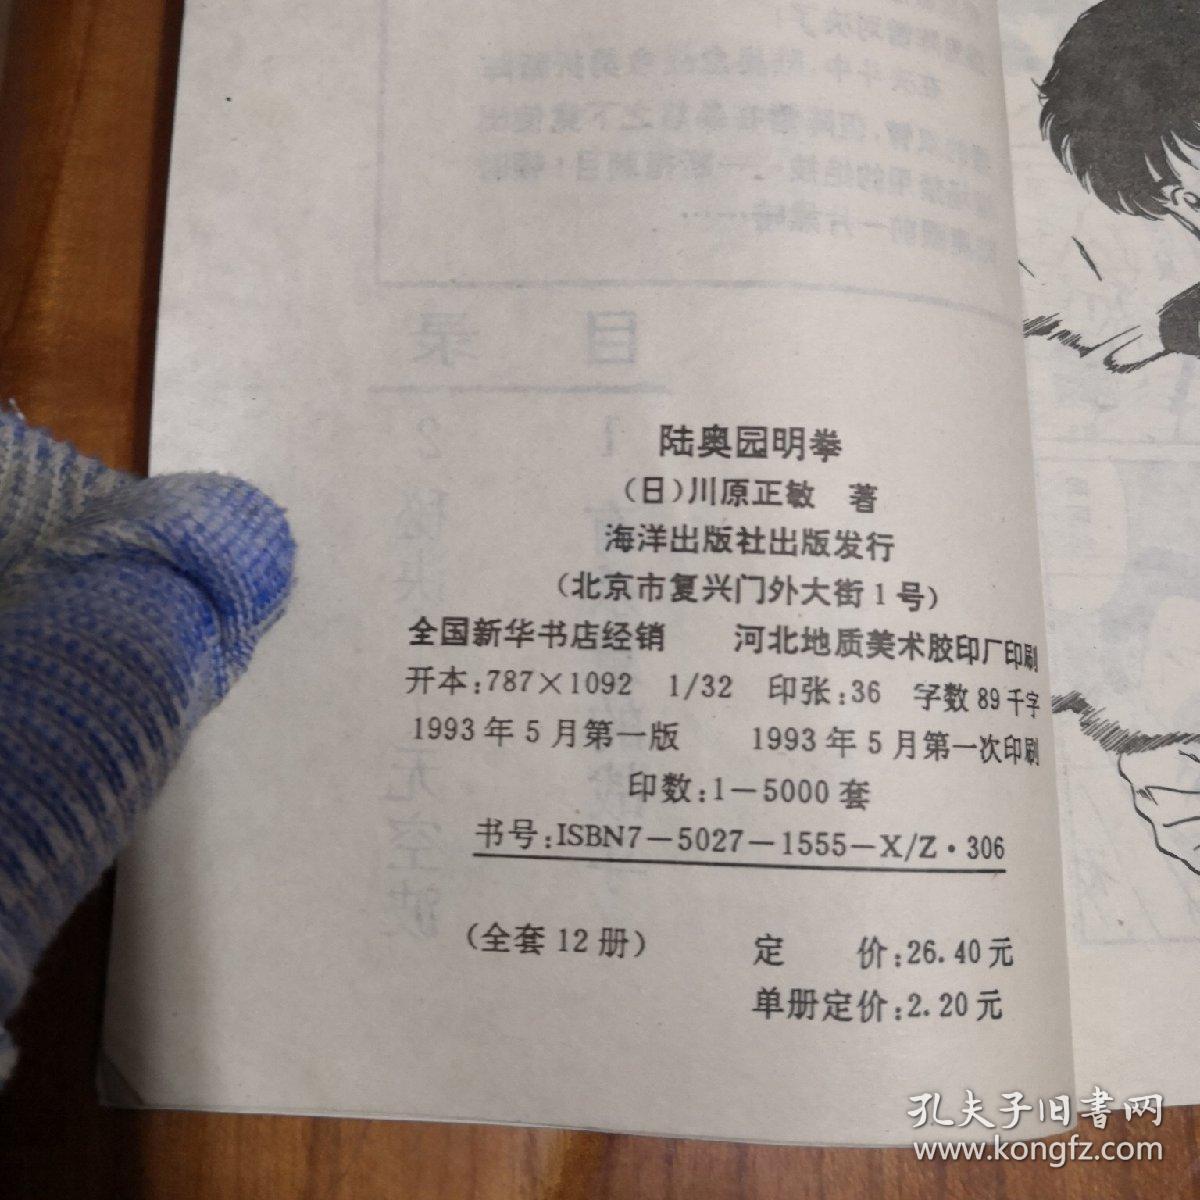 陆奥园明拳
（日）川原正敏　著
海洋出版社出版发行
（北京市复兴门外大街1号）
全国新华书店经销　河北地质美术胶印厂印刷
开本：787×1092　1/32　印张：36　字数89千字
1993年5月第一版　1993年5月第一次印刷
印数：1—5000套
书号：ISBN7—5027—1555—X/Z·306
（全套12册）　定　价：26.40元
单册定价：2.20元
目　录
孔夫子旧书网
www.kongfz.com